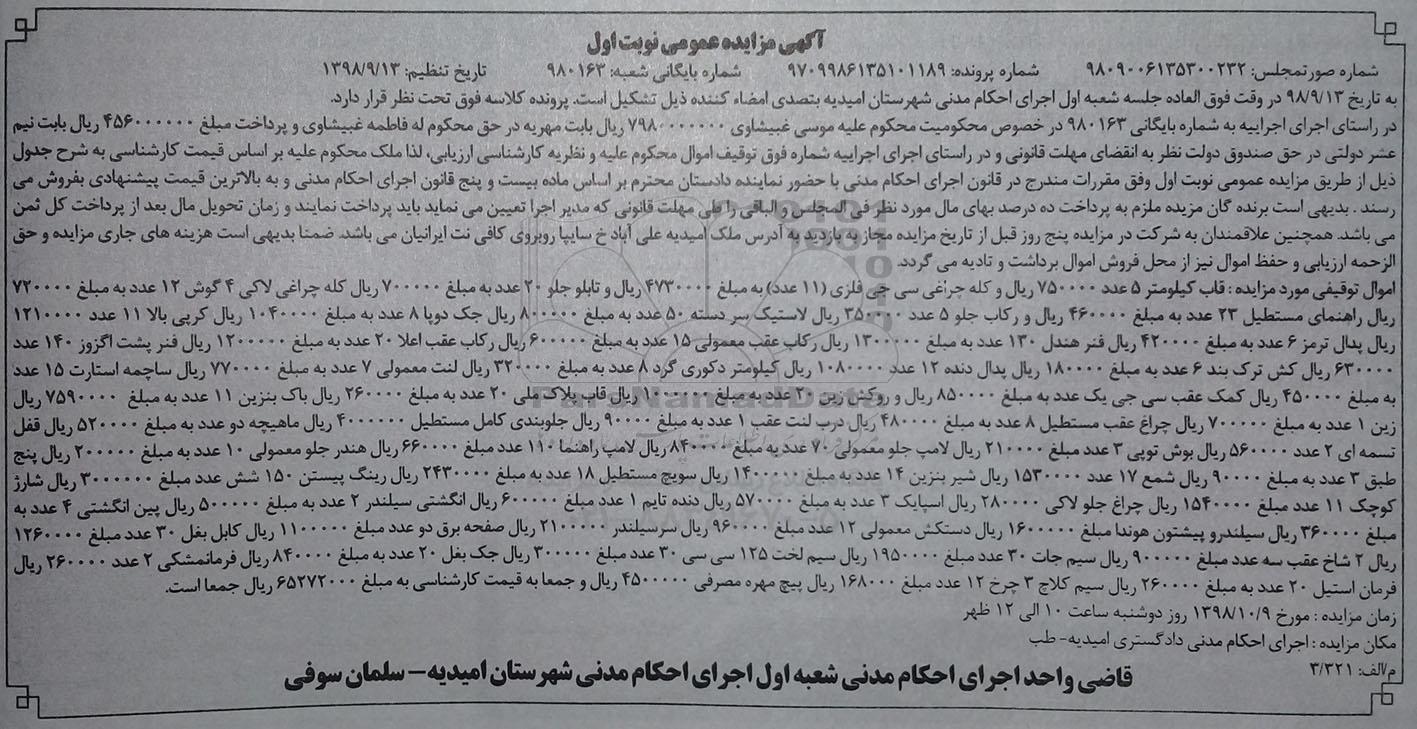 آگهی مزایده عمومی نوبت اول
شماره صورتمجلس: ۹۸۰۹۰۰۶۱۳۵۳۰۰۲۳۲ شماره پرونده: ۹۷۰۹۹۸۶۱۳۵۱۰۱۱۸۹ شماره بایگانی شعبه: ۹۸۰۱۶۳ تاریخ تنظیم: ۱۳۹۸/۹/۱۳
به تاریخ ۹۸/۹/۱۳ در وقت فوق العاده جلسه شعبه اول اجرای احکام مدنی شهرستان امیدیه بتصدی امضاء کننده ذیل تشکیل است. پرونده کلاسه فوق تحت نظر قرار دارد.
در راستای اجرای اجراییه به شماره بایگانی ۹۸۰۱۶۳ در خصوص محکومیت محکوم علیه موسی غبیشاوی ۷۹۸۰۰۰۰۰۰۰ ریال بابت مهریه در حق محکوم له فاطمه غبیشاوی و پرداخت مبلغ ۴۵۶۰۰۰۰۰۰ ریال بابت نیم
عشر دولتی در حق صندوق دولت نظر به انقضای مهلت قانونی و در راستای اجرای اجراییه شماره فوق توقیف اموال محکوم علیه و نظریه کارشناسی ارزیابی، لذا ملک محکوم علیه بر اساس قیمت کارشناسی به شرح جدول
ذیل از طریق مزایده عمومی نوبت اول وفق مقررات مندرج در قانون اجرای احکام مدنی با حضور نماینده دادستان محترم بر اساس ماده بیست و پنج قانون اجرای احکام مدنی و به بالاترین قیمت پیشنهادی بفروش می
رسند . بدیهی است برنده گان مزیده ملزم به پرداخت ده درصد بهای مال مورد نظر فی المجلس و الباقی را طی مهلت قانونی که مدیر اجرا تعیین می نماید باید پرداخت نمایند و زمان تحویل مال بعد از پرداخت کل ثمن
می باشد. همچنین علاقمندان به شرکت در مزایده پنج روز قبل از تاریخ مزایده مجاز به بازدید به آدرس ملک امیدیه علی آباد خ سایپا روبروی کافی نت ایرانیان می باشد. ضمنا بدیهی است هزینه های جاری مزایده و حق
الزحمه ارزیابی و حفظ اموال نیز از محل فروش اموال برداشت و تادیه می گردد.
اموال توقیفی مورد مزایده : قاب کیلومتر ۵ عدد ۷۵۰۰۰۰ ریال و کله چراغی سی جی فلزی (۱۱ عدد) به مبلغ ۴۷۳۰۰۰۰ ریال و تابلو جلو ۲۰ عدد به مبلغ ۷۰۰۰۰۰ ریال کله چراغی لاکی ۴ گوش ۱۲ عدد به مبلغ ۷۲۰۰۰۰
ریال راهنمای مستطیل ۲۳ عدد به مبلغ ۴۶۰۰۰۰ ریال و رکاب جلو ۵ عدد ۳۵۰۰۰۰ ریال لاستیک سر دسته ۵۰ عدد به مبلغ ۸۰۰۰۰۰ ریال جک دوپا ۸ عدد به مبلغ ۱۰۴۰۰۰۰ ریال کرپی بالا ۱۱ عدد ۱۲۱۰۰۰۰
ریال پدال ترمز ۶ عدد به مبلغ ۴۲۰۰۰۰ ریال فنر هندل ۱۳۰ عدد به مبلغ ۱۳۰۰۰۰۰ ریال رکاب عقب معمولی ۱۵ عدد به مبلغ ۶۰۰۰۰۰ ریال رکاب عقب اعلا ۲۰ عدد به مبلغ ۱۲۰۰۰۰۰ ریال فنر پشت اگزوز ۱۴۰ عدد
۶۳۰۰۰۰ ریال کش ترک بند ۶ عدد به مبلغ ۱۸۰۰۰۰ ریال پدال دنده ۱۲ عدد ۱۰۸۰۰۰۰ ریال کیلومتر دکوری گرد ۸ عدد به مبلغ ۳۲۰۰۰۰ ریال لنت معمولی ۷ عدد به مبلغ ۷۷۰۰۰۰ ریال ساچمه استارت ۱۵ عدد
به مبلغ ۴۵۰۰۰۰ ریال کمک عقب سی جی یک عدد به مبلغ ۸۵۰۰۰۰ ریال و روکش زین ۲۰ عدد به مبلغ ۱۰۰۰۰۰۰ ریال قاب پلاک ملی ۲۰ عدد به مبلغ ۲۶۰۰۰۰ ریال باک بنزین ۱۱ عدد به مبلغ ۷۵۹۰۰۰۰ ریال
زین ۱ عدد به مبلغ ۷۰۰۰۰۰ ریال چراغ عقب مستطیل ۸ عدد به مبلغ ۴۸۰۰۰۰ ریال درب لنت عقب ۱ عدد به مبلغ ۹۰۰۰۰ ریال جلوبندی کامل مستطیل ۴۰۰۰۰۰۰ ریال ماهیچه دو عدد به مبلغ ۵۲۰۰۰۰ ریال قفل
تسمه ای ۲ عدد ۵۶۰۰۰۰ ریال بوش توپی ۳ عدد مبلغ ۲۱۰۰۰۰ ریال لامپ جلو معمولی ۷۰ عدد به مبلغ ۸۴۰۰۰۰ ریال لامپ راهنما ۱۱۰ عدد مبلغ ۶۶۰۰۰۰ ریال هندر جلو معمولی ۱۰ عدد به مبلغ ۲۰۰۰۰۰ ریال پنج
طبق ۳ عدد به مبلغ ۹۰۰۰۰ ریال شمع ۱۷ عدد ۱۵۳۰۰۰۰ ریال شیر بنزین ۱۴ عدد به مبلغ ۱۴۰۰۰۰۰ ریال سویچ مستطیل ۱۸ عدد به مبلغ ۲۴۳۰۰۰۰ ریال رینگ پیستن ۱۵۰ شش عدد مبلغ ۳۰۰۰۰۰۰ ریال شارژ
کوچک ۱۱ عدد مبلغ ۱۵۴۰۰۰۰ ریال چراغ جلو لاکی ۲۸۰۰۰۰ ریال اسپایک ۳ عدد به مبلغ ۵۷۰۰۰۰ ریال دنده تایم ۱ عدد مبلغ ۶۰۰۰۰۰ ریال انگشتی سیلندر ۲ عدد به مبلغ ۵۰۰۰۰۰ ریال پین انگشتی ۴ عدد به
مبلغ ۳۶۰۰۰۰ ریال سیلندرو پیشتون هوندا مبلغ ۱۶۰۰۰۰۰ ریال دستکش معمولی ۱۲ عدد مبلغ ۹۶۰۰۰۰ ریال سرسیلندر ۲۱۰۰۰۰۰ ریال صفحه برق دو عدد مبلغ ۱۱۰۰۰۰۰ ریال کابل بغل ۳۰ عدد مبلغ ۱۲۶۰۰۰۰
ریال ۲ شاخ عقب سه عدد مبلغ ۹۰۰۰۰۰ ریال سیم جات ۳۰ عدد مبلغ ۱۹۵۰۰۰۰ ریال سیم لخت ۱۲۵ سی سی ۳۰ عدد مبلغ ۳۰۰۰۰۰ ریال جک بغل ۲۰ عدد به مبلغ ۸۴۰۰۰۰ ریال فرمانمشکی ۲ عدد ۲۶۰۰۰۰ ریال
فرمان استیل ۲۰ عدد به مبلغ ۲۶۰۰۰۰ ریال سیم کلاچ ۳ چرخ ۱۲ عدد مبلغ ۱۶۸۰۰۰ ریال پیچ مهره مصرفی ۴۵۰۰۰۰۰ ریال و جمعا به قیمت کارشناسی به مبلغ ۶۵۲۷۲۰۰۰ ریال جمعا است.
زمان مزایده : مورخ ۱۳۹۸/۱۰/۹ روز دوشنبه ساعت ۱۰ الی ۱۲ ظهر
مکان مزایده : اجرای احکام مدنی دادگستری امیدیه- طب
م/الف: ۳/۳۲۱
قاضی واحد اجرای احکام مدنی شعبه اول اجرای احکام مدنی شهرستان امیدیه – سلمان سوفی
ParsNamadData